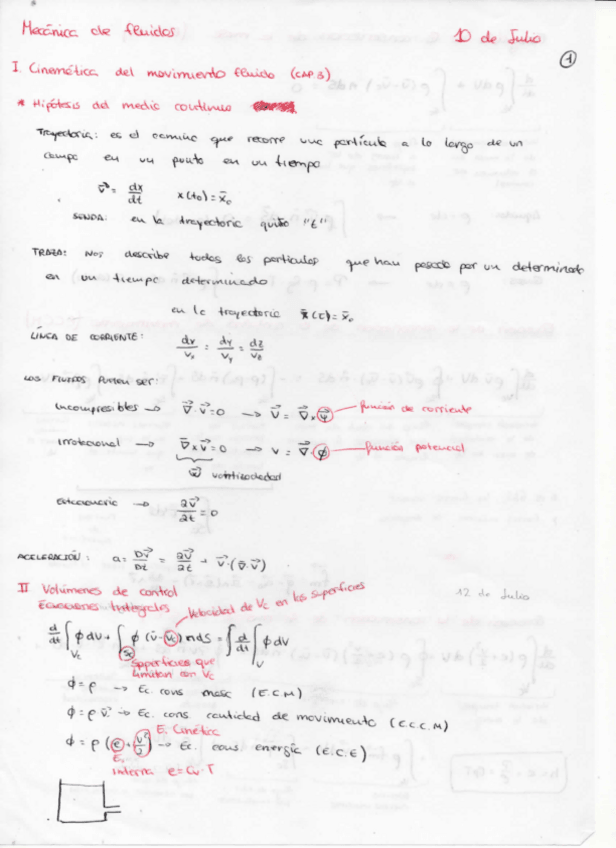 Mecánica de fluidos 10 de Julio
1
I. Cinemática del movimiento fluido (CAP 3)
* Hipótesis del medio continuo
Trayectoria: es el camino que recorre una partícula a lo largo de un
campo en un punto en un tiempo
v⃗ = dx/dt x(t₀) = x̄₀
SENDA: en la trayectoria quito "t"
TRAZA: Nos describe todas las partículas que han pasado por un determinado
en un tiempo determinado
en la trayectoria x̄(τ) = x̄₀
LÍNEA DE CORRIENTE: dx/Vx = dy/Vy = dz/Vz
LOS FLUIDOS PUEDEN SER:
Incompresibles → ∇⃗·v⃗ = 0 → V⃗ = ∇⃗ x ψ — función de corriente
Irrotacional → ∇⃗ x v⃗ = 0 → v = ∇⃗·ϕ — función potencial
ω⃗ vorticidad
Estacionario → ∂v⃗/∂t = 0
ACELERACIÓN: a = Dv⃗/Dt = ∂v⃗/∂t + v⃗·(∇·v⃗)
II Volúmenes de control 12 de Julio
Ecuaciones Integrales Velocidad de Vc en las superficies
d/dt ∫Vc ϕ dV + ∫Sc ϕ (v̄ - v̄c) n dS = ∫ d/dt ∫V ϕ dV
Superficies que
limitan con Vc
ϕ = ρ → Ec. cons masa (E.C.M)
ϕ = ρ v⃗ → Ec. cons. cantidad de movimiento (E.C.C.M)
E. Cinética
ϕ = ρ (e + v²/2) → Ec. cons energía (E.C.E)
E.
interna e = Cv·T